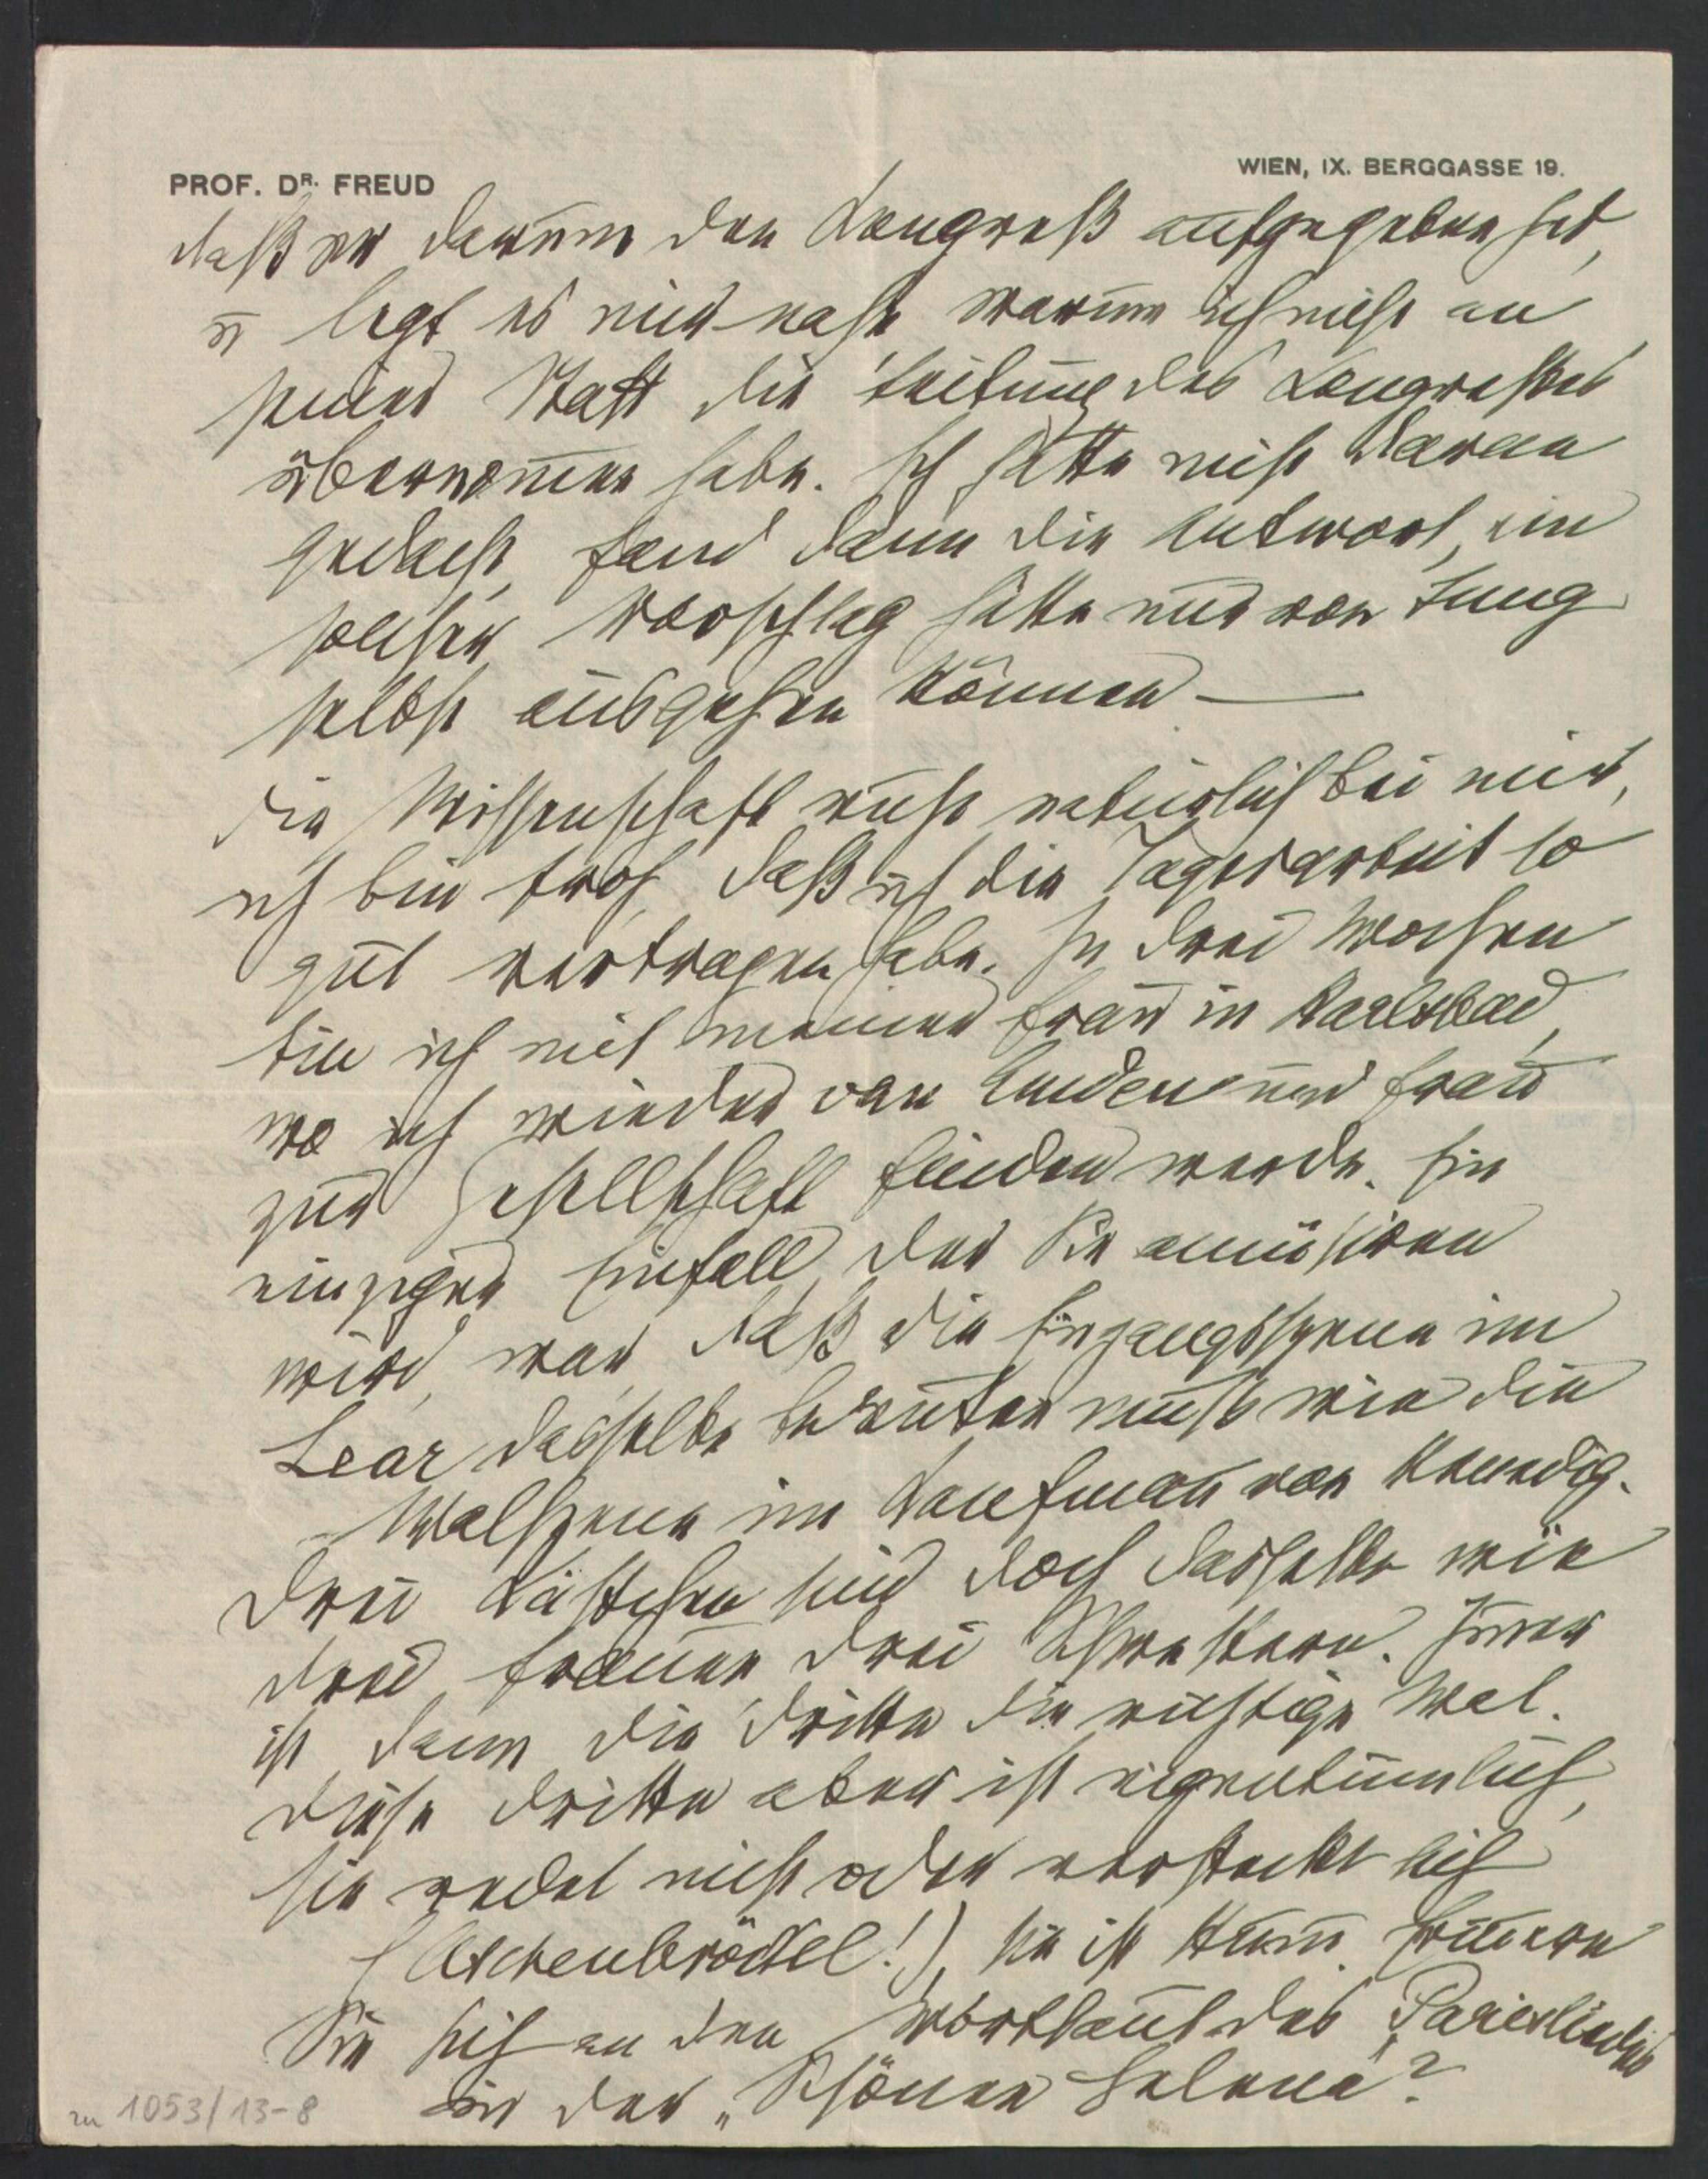 PROF. DR. FREUD
WIEN, IX. BERGGASSE 19.
daß er darum den Kongreß aufgegeben hat,
u legt es mir nahe warum ich nicht an
seiner Statt die Leitung des Kongresses
übernom̄en habe. Ich hatte nicht daran
gedacht, fand dann die Antwort, ein
solcher Vorschlag hätte nur von Jung
selbst ausgehen können —
Die Wissenschaft ruht natürlich bei mir,
ich bin froh, daß ich die Tagesarbeit so
gut vertragen habe. In drei Wochen
bin ich mit meiner Frau in Karlsbad,
wo ich wieder van Emden und Frau
zur Gesellschaft finden werde. Ein
einziger Einfall, der Sie amüsiren
wird, war, daß die Eingangsszene im
Lear dasselbe bedeuten muß wie die
Walszene im Kaufman̄ von Venedig.
Drei Kästchen sind doch dasselbe wie
drei Frauen drei Schwestern. Im̄er
ist dann die dritte die richtige Wal.
Diese dritte aber ist eigentümlich,
sie redet nicht oder versteckt sich
(Aschenbrödel!), sie ist stum̄. Erinnern
Sie sich an den Wortlaut des Parisliedes
in der „Schönen Helena"?
zu 1053/13-8